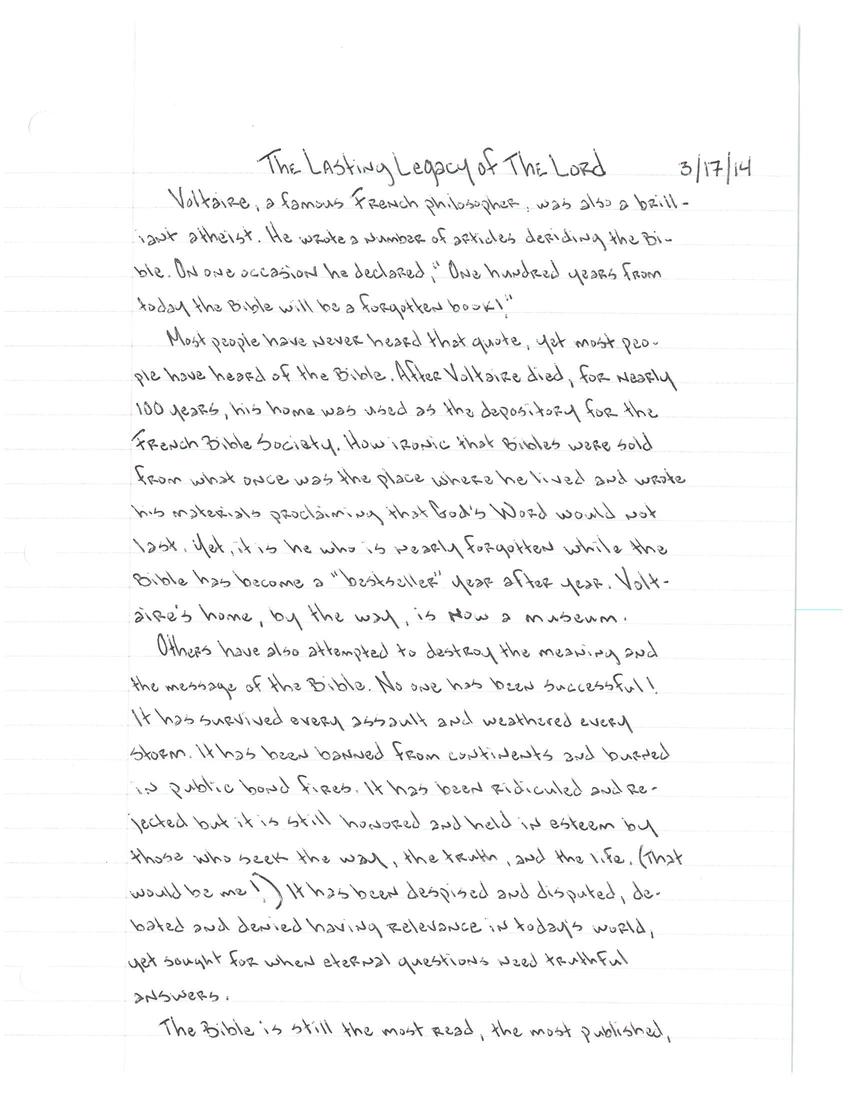 The Lasting Legacy of The Lord 3/17/14
Voltaire, a famous French philosopher, was also a brill-
iant atheist. He wrote a number of articles deriding the Bi-
ble. On one occasion he declared, "One hundred years from
today the Bible will be a forgotten book!"
Most people have never heard that quote, yet most peo-
ple have heard of the Bible. After Voltaire died, for nearly
100 years, his home was used as the depository for the
French Bible Society. How ironic that Bibles were sold
from what once was the place where he lived and wrote
his materials proclaiming that God's Word would not
last. Yet, it is he who is nearly forgotten while the
Bible has become a "bestseller" year after year. Volt-
aire's home, by the way, is now a museum.
Others have also attempted to destroy the meaning and
the message of the Bible. No one has been successful!
It has survived every assault and weathered every
storm. It has been banned from continents and burned
in public bond fires. It has been ridiculed and re-
jected but it is still honored and held in esteem by
those who seek the way, the truth, and the life. (That
would be me!) It has been despised and disputed, de-
bated and denied having relevance in today's world,
yet sought for when eternal questions need truthful
answers.
The Bible is still the most read, the most published,